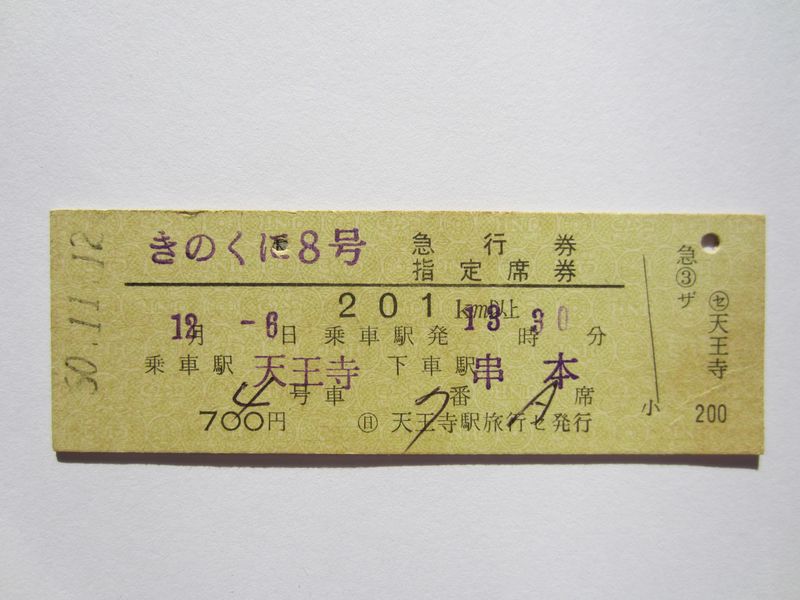 50.11.12
きのくに8号 急行券
指定席券
201km以上
12月-6日 乗車駅発13時30分
乗車駅 天王寺 下車駅 串本
4号車 7番A席
700円 ㊐ 天王寺駅旅行セ発行
急③ザ
㋝天王寺
小
200